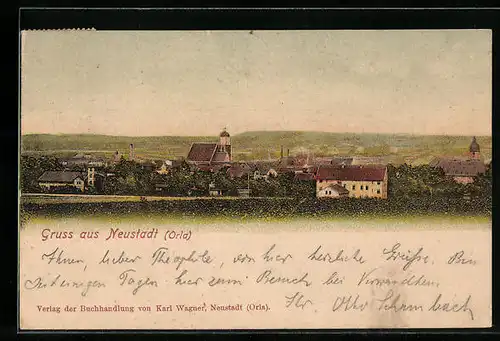 Gruss aus Neustadt (Orla)
Ihnen, lieber Theophile, von hier herzliche Grüße. Bin
seit einigen Tagen hier zum Besuch bei Verwandten.
Ihr Otto Schrumbach
Verlag der Buchhandlung von Karl Wagner, Neustadt (Orla).